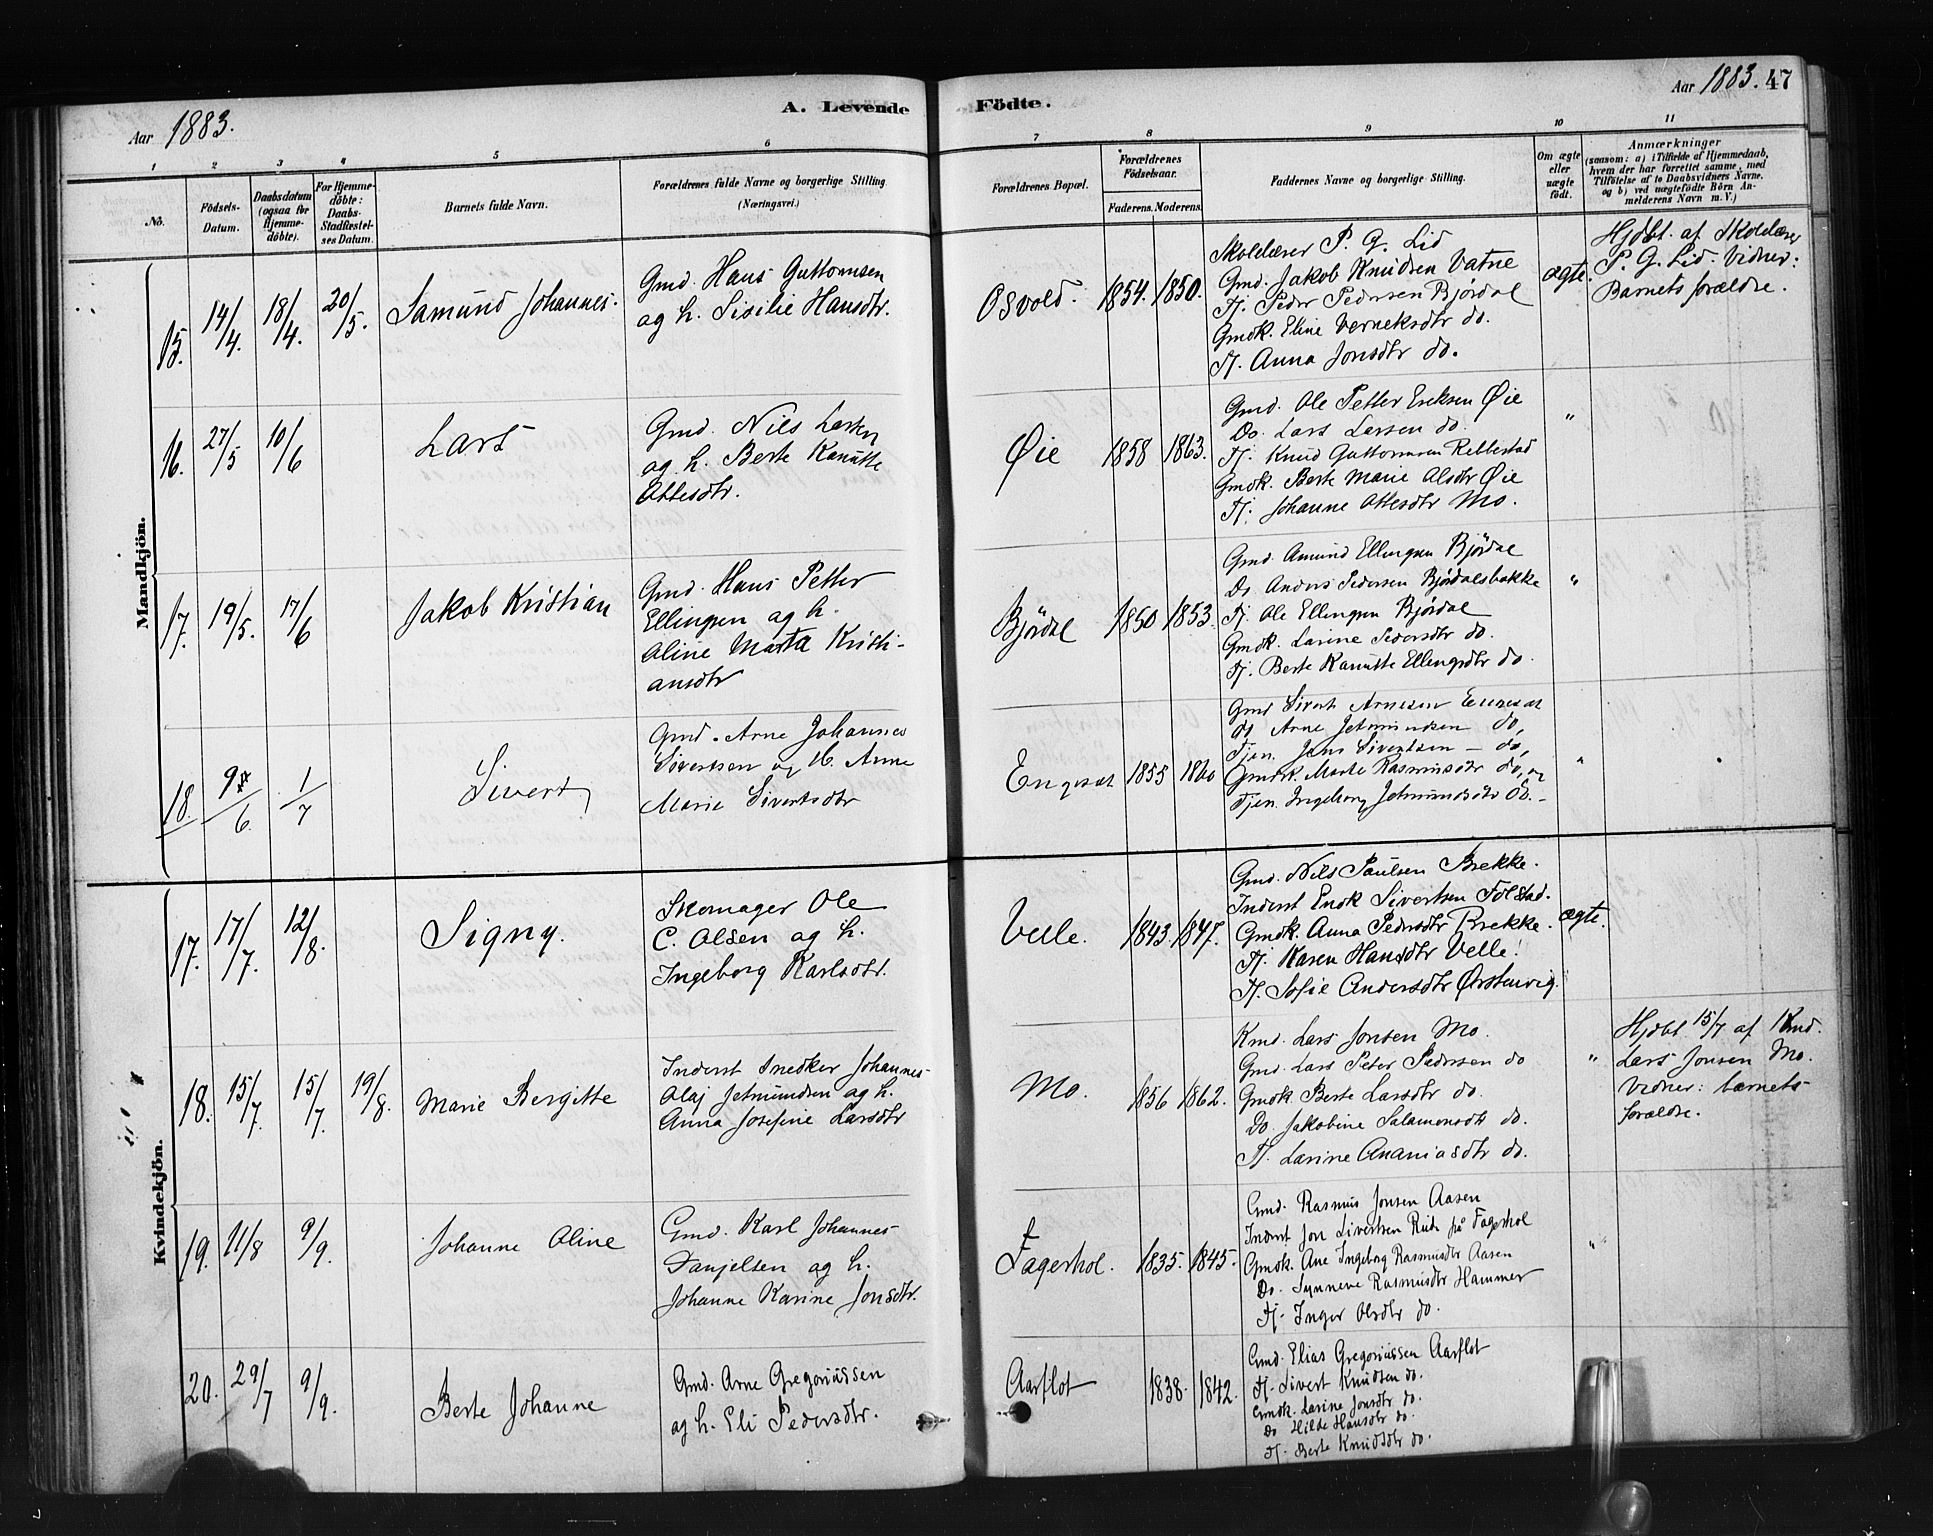 Aar 1883.
A. Levende
Födte.
Aar 1883. 47
1 2 3 4 5 6 7 8 9 10 11
No.
Födsels-
Datum.
Daabsdatum
(ogsaa for
Hjemme-
döbte).
For Hjemme-
döbte:
Daabs-
Stadfæstel-
ses Datum.
Barnets fulde Navn.
Forældrenes fulde Navne og borgerlige Stilling
(Næringsvei.)
Forældrenes Bopæl.
Forældrenes
Födselsaar.
Faderens. Moderens.
Faddernes Navne og borgerlige Stilling.
Om ægte
eller
uægte
födt.
Anmærkninger
(saasom: a) i Tilfælde af Hjemmedaab,
hvem der har forrettet samme, med
Tilföielse af to Daabsvidners Navne.
og b) ved uægtefödte Börn An-
melderens Navn m. V.)
Mandkjön.
15. 14/4. 18/4. 20/5. Samund Johannes.
Gmd. Hans Guttormsen
og h. Sisilie Hansdtr.
Osvold. 1854. 1850.
Skolelærer P. G. Lid
Gmd. Jakob Knudsen Vatne
Tj. Peder Pedersen Bjørdal
Gmdk. Eline Verneksdtr do.
Tj. Anna Jonsdtr do.
ægte.
Hjdbt. af Skolelærer
P. G. Lid. Vidner:
Barnets forældre.
16. 27/5 10/6 Lars
Gmd. Nils Larsen
og h. Berte Kanutte
Ottesdtr.
Øie 1858 1863.
Gmd. Ole Petter Eriksen Øie
Do. Lars Larsen do.
Tj. Knud Guttormsen Rebbestad
Gmdk. Berte Marie Olsdtr Øie
Tj. Johanne Ottesdtr Mo.
"
17. 19/5. 17/6 Jakob Kristian
Gmd. Hans Petter
Ellingsen og h.
Oline Marta Kristi-
ansdtr
Bjørdal 1850 1853.
Gmd. Amund Ellingsen Bjørdal
Do Anders Pedersen Bjørdalsbakke
Tj. Ole Ellingsen Bjørdal
Gmdk. Larine Pedersdtr do.
Tj. Berte Kanutte Ellingsdtr do.
"
18. 9/6. 1/7 Sivert
Gmd. Arne Johannes
Sivertsen og H. Anne
Marie Sivertsdtr
Engeset 1855 1860
Gmd Sivert Arnesen Engeset
do Arne Jetmundsen do,
Tjen. Jens Sivertsen - do,
Gmdk. Marte Rasmusdtr do, og
Tjen. Ingeborg Jetmundsdtr do. -
"
Kvindekjön.
17. 17/7. 12/8. Signy.
Skomager Ole
C. Olsen og h.
Ingeborg Karlsdtr.
Velle. 1843. 1847.
Gmd. Nils Paulsen Brekke.
Inderst Enok Sivertsen Folstad.
Gmdk. Anna Pedersdtr Brekke.
Tj. Karen Hansdtr Velle.
Tj. Sofie Andersdtr Ørstenvig.
ægte.
18. 15/7. 15/7. 19/8. Marie Bergitte
Inderst Snedker Johannes
Olaj Jetmundsen og h.
Anna Josefine Larsdtr
Mo. 1856 1862.
Kmd. Lars Jonsen Mo.
Gmd. Lars Peter Pedersen do
Gmdk Berte Larsdtr do.
Do. Jakobine Salamonsdtr do.
Tj. Larine Ananiasdtr do.
"
Hjdbt 15/7 af Kmd.
Lars Jonsen Mo.
Vidner: barnets
forældre.
19. 11/8 9/9. Johanne Oline
Gmd. Karl Johannes
Danjelsen og h.
Johanne Karine Jonsdtr.
Fagerhol. 1835. 1845.
Gmd. Rasmus Jonsen Aasen
Inderst Jon Sivertsen Rud på Fagerhol
Gmdk. Ane Ingeborg Rasmusdtr Aasen
Do. Synneve Rasmusdtr Hammer
Tj. Inger Olsdtr do.
"
20. 29/7 9/9. Berte Johanne
Gmd. Arne Gregoriussen
og h. Eli Pedersdtr.
Aarflot 1838. 1842.
Gmd. Elias Gregoriussen Aarflot
Tj. Sivert Knudsen do.
Gmdk. Larine Jonsdtr do.
Do Hilde Hansdtr do.
Tj. Berte Knudsdtr do.